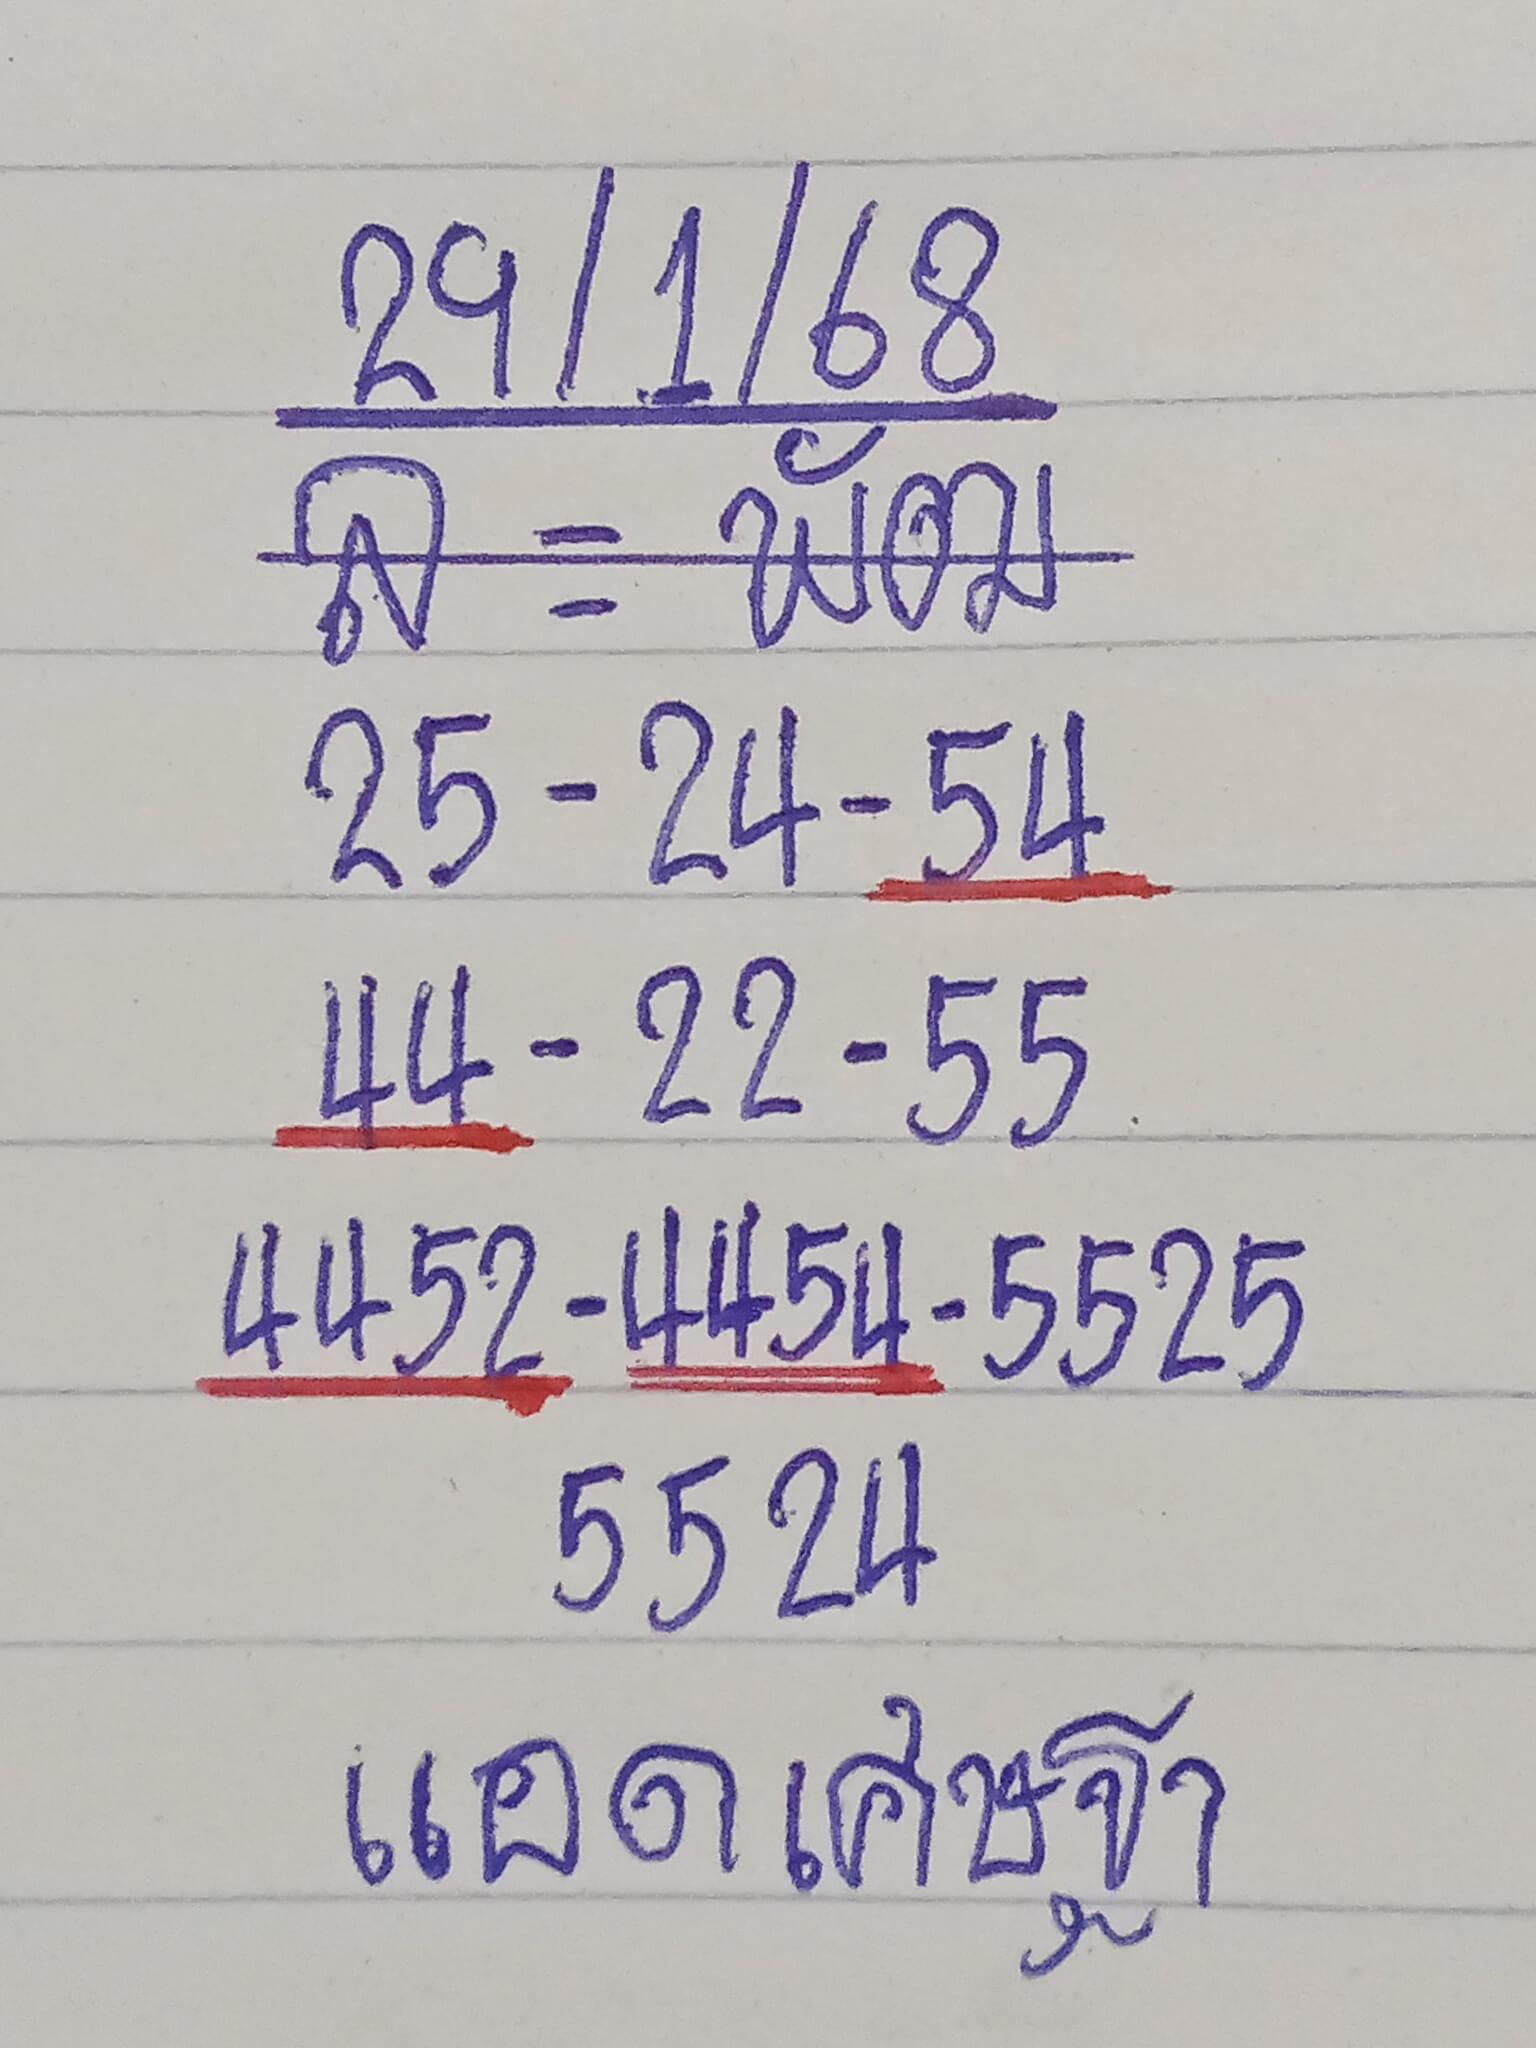 29/1/68
ล = พัฒ
25-24-54
44-22-55
4452-4454-5525
5524
แอดเศรษฐี